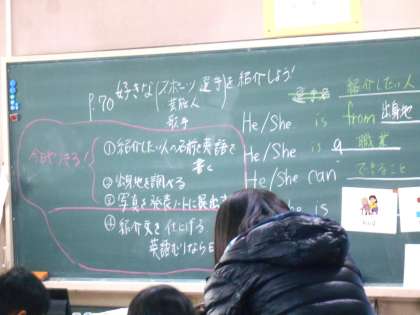 P.70 好きな(スポーツ選手)を紹介しよう!
芸能人
歌手
今日やろう!
①紹介したい人の名前を英語で
書く
②出身地を調べる
③写真を発表ノートに
④紹介文を仕上げる
英語むりなら
紹介したい人
He/She is from 出身地
He/She is a 職業
He/She can できること
He/She is